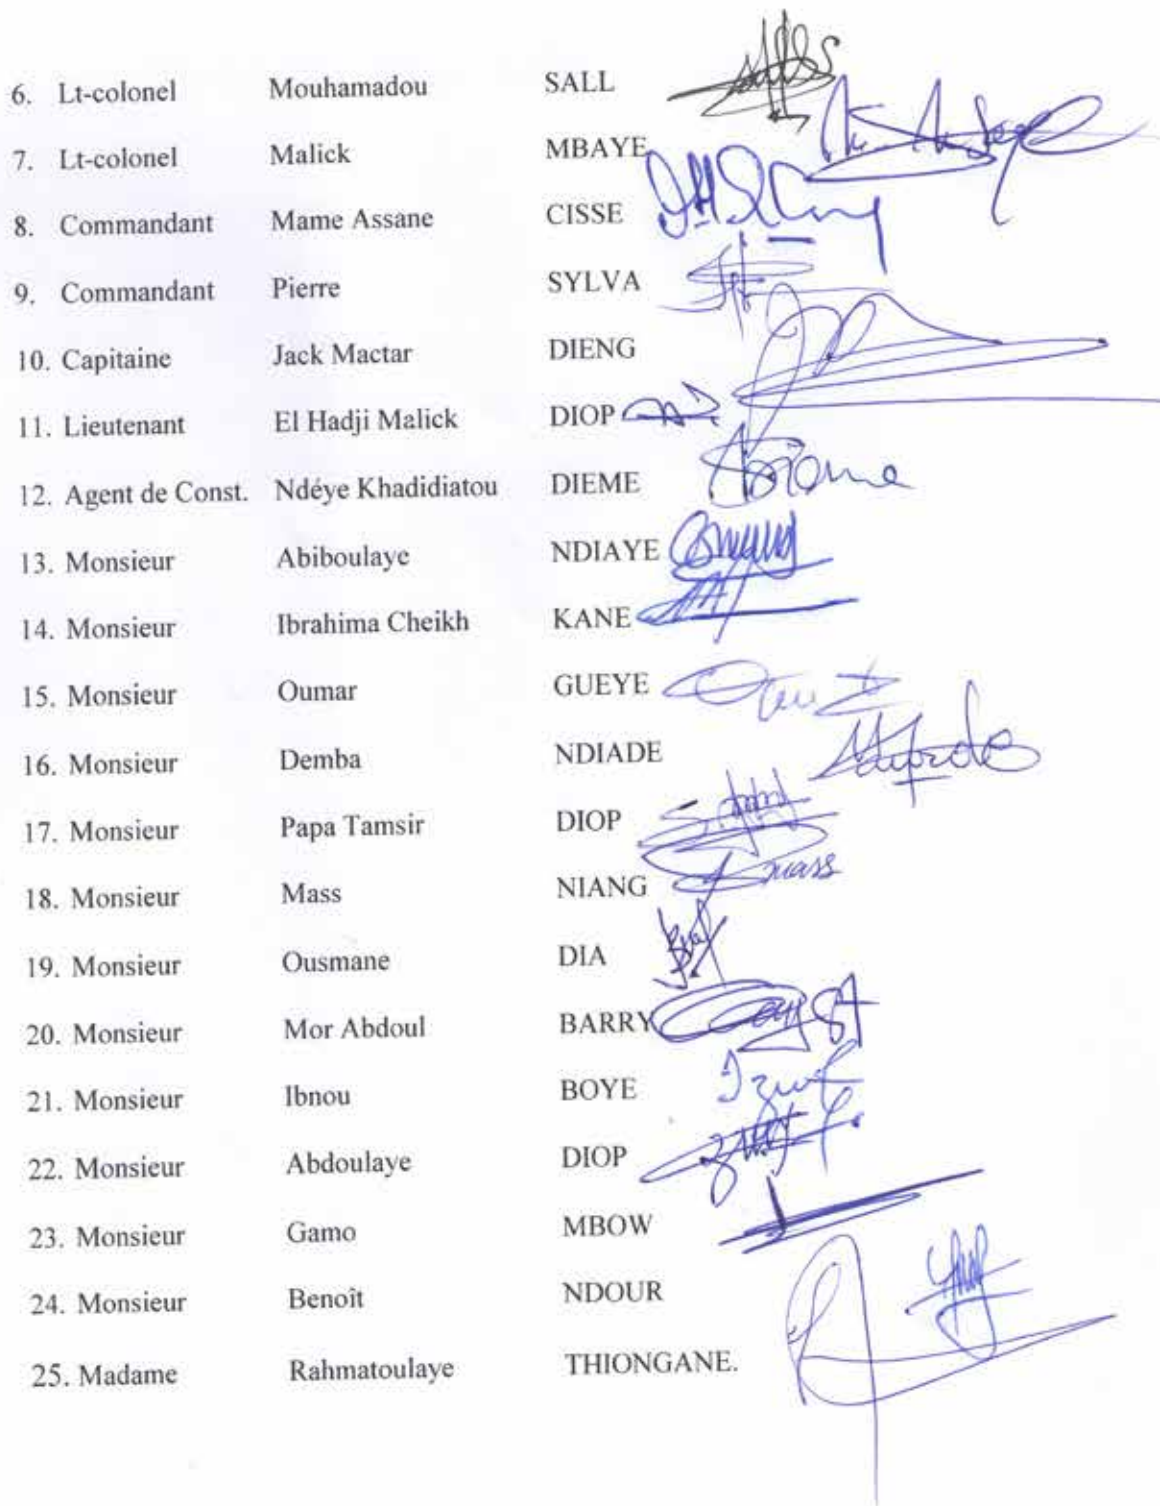 6. Lt-colonel Mouhamadou SALL
7. Lt-colonel Malick MBAYE
8. Commandant Mame Assane CISSE
9. Commandant Pierre SYLVA
10. Capitaine Jack Mactar DIENG
11. Lieutenant El Hadji Malick DIOP
12. Agent de Const. Ndéye Khadidiatou DIEME
13. Monsieur Abiboulaye NDIAYE
14. Monsieur Ibrahima Cheikh KANE
15. Monsieur Oumar GUEYE
16. Monsieur Demba NDIADE
17. Monsieur Papa Tamsir DIOP
18. Monsieur Mass NIANG
19. Monsieur Ousmane DIA
20. Monsieur Mor Abdoul BARRY
21. Monsieur Ibnou BOYE
22. Monsieur Abdoulaye DIOP
23. Monsieur Gamo MBOW
24. Monsieur Benoît NDOUR
25. Madame Rahmatoulaye THIONGANE.